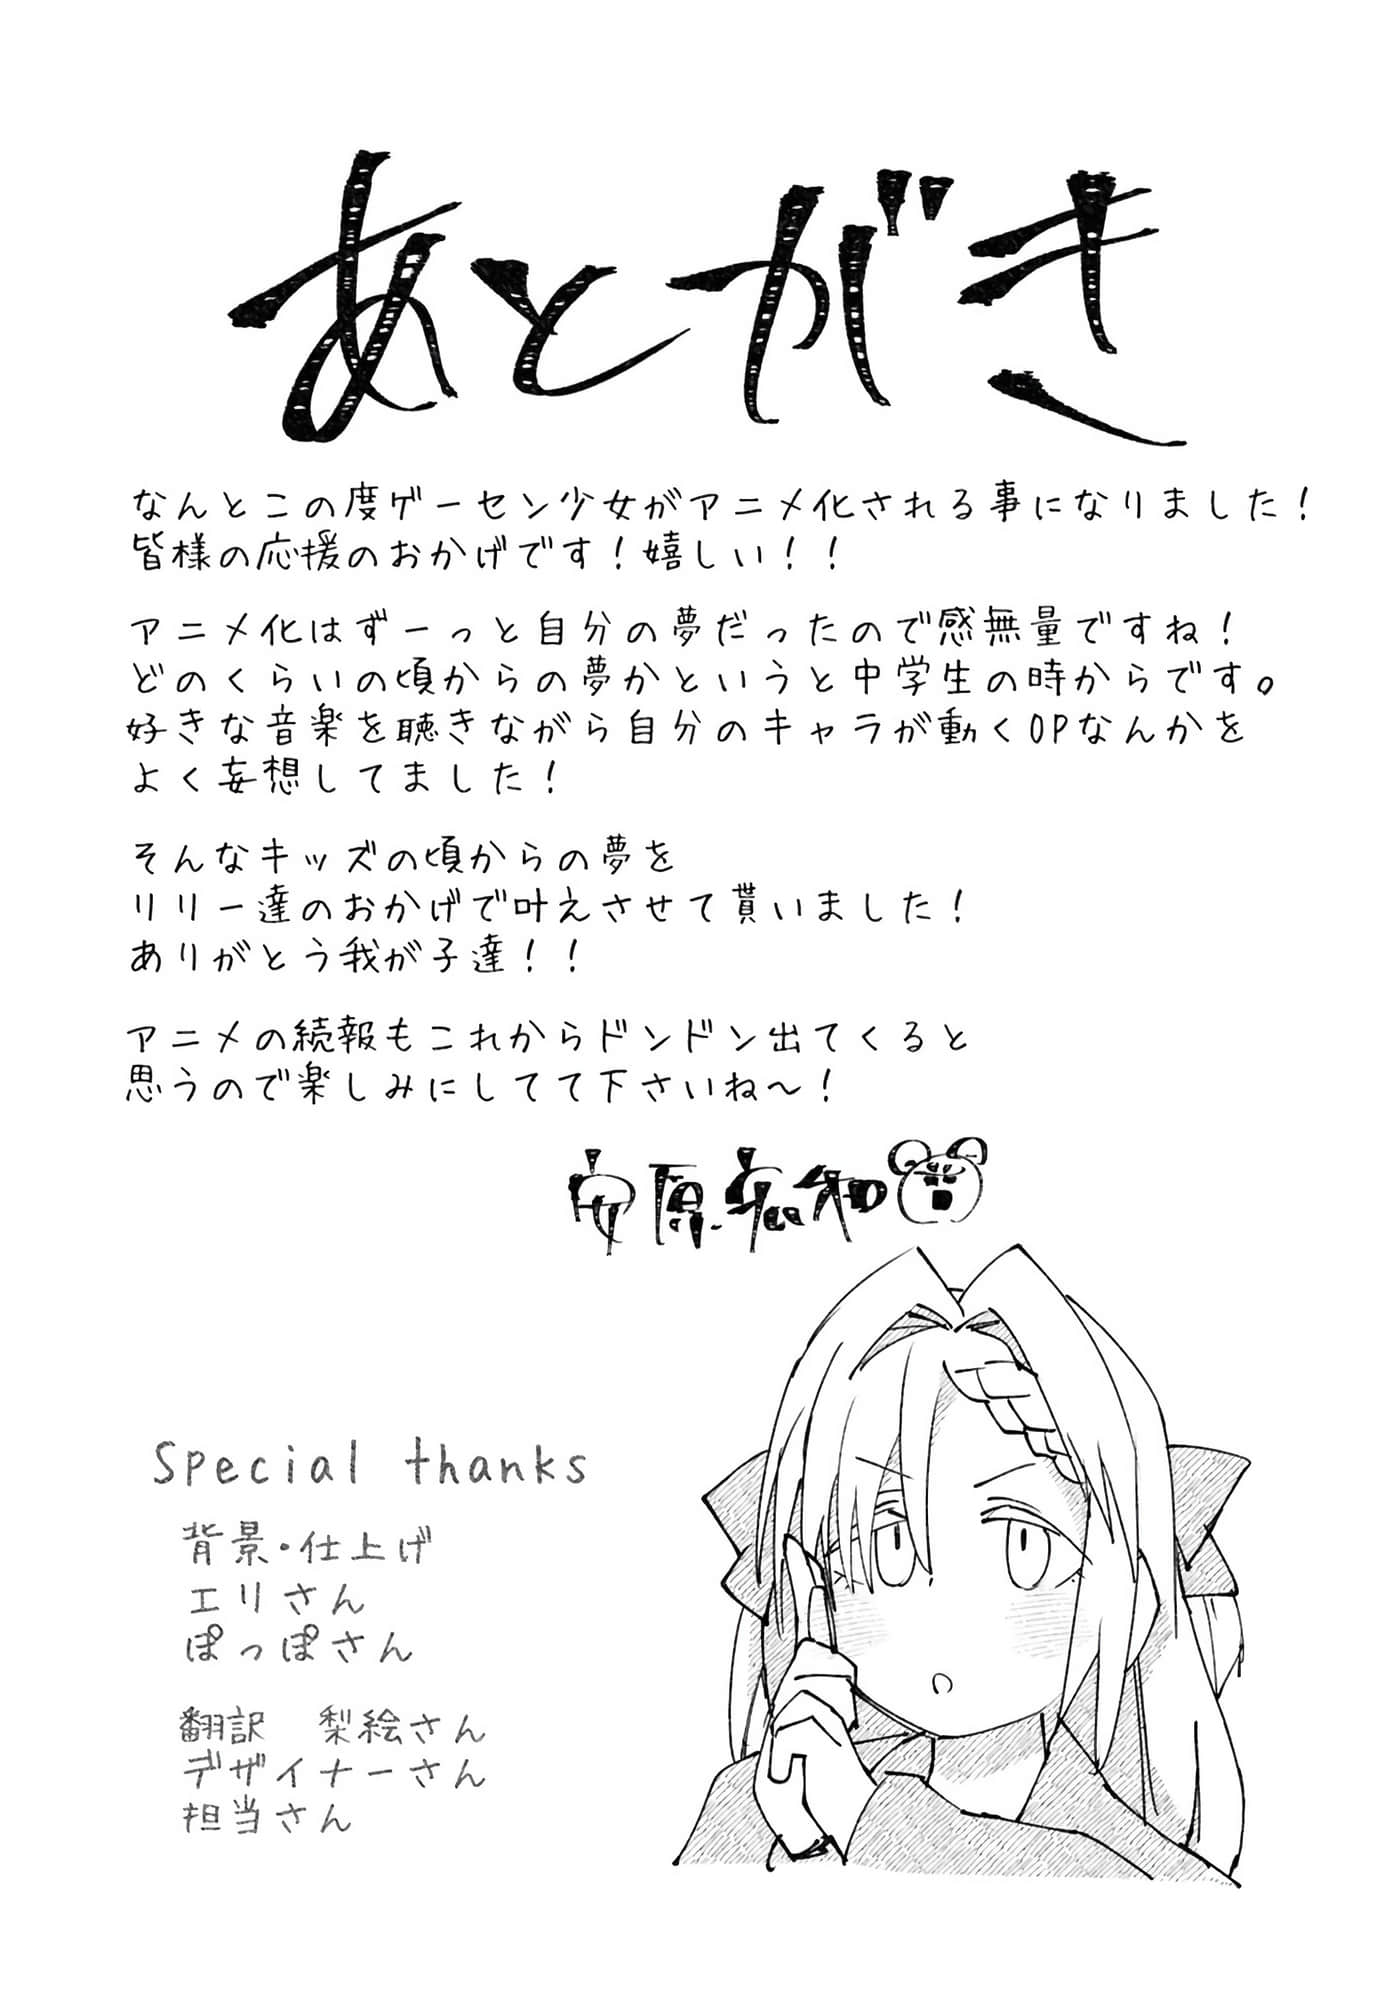 あとがき
なんとこの度ゲーセン少女がアニメ化される事になりました！
皆様の応援のおかげです！嬉しい！！
アニメ化はずーっと自分の夢だったので感無量ですね！
どのくらいの頃からの夢かというと中学生の時からです。
好きな音楽を聴きながら自分のキャラが動くOPなんかを
よく妄想してました！
そんなキッズの頃からの夢を
リリー達のおかげで叶えさせて貰いました！
ありがとう我が子達！！
アニメの続報もこれからドンドン出てくると
思うので楽しみにしてて下さいね～！
安原宏和
Special thanks
背景・仕上げ
エリさん
ぽっぽさん
翻訳　梨絵さん
デザイナーさん
担当さん